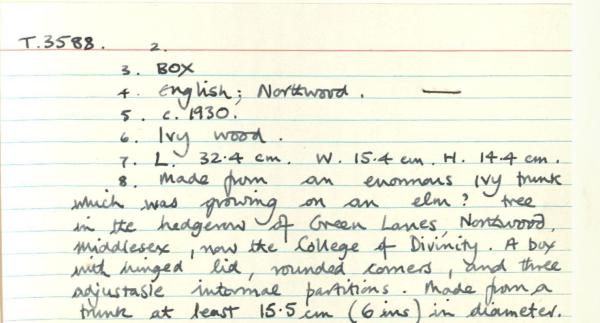 T.3588. 2.
3. BOX
4. English; Northwood. —
5. c. 1930.
6. Ivy wood.
7. L. 32.4 cm. W. 15.4 cm. H. 14.4 cm.
8. Made from an enormous Ivy trunk
which was growing on an elm? tree
in the hedgerow of Green Lanes, Northwood,
Middlesex, now the College of Divinity. A box
with hinged lid, rounded corners, and three
adjustable internal partitions. Made from a
trunk at least 15.5 cm (6 ins) in diameter.